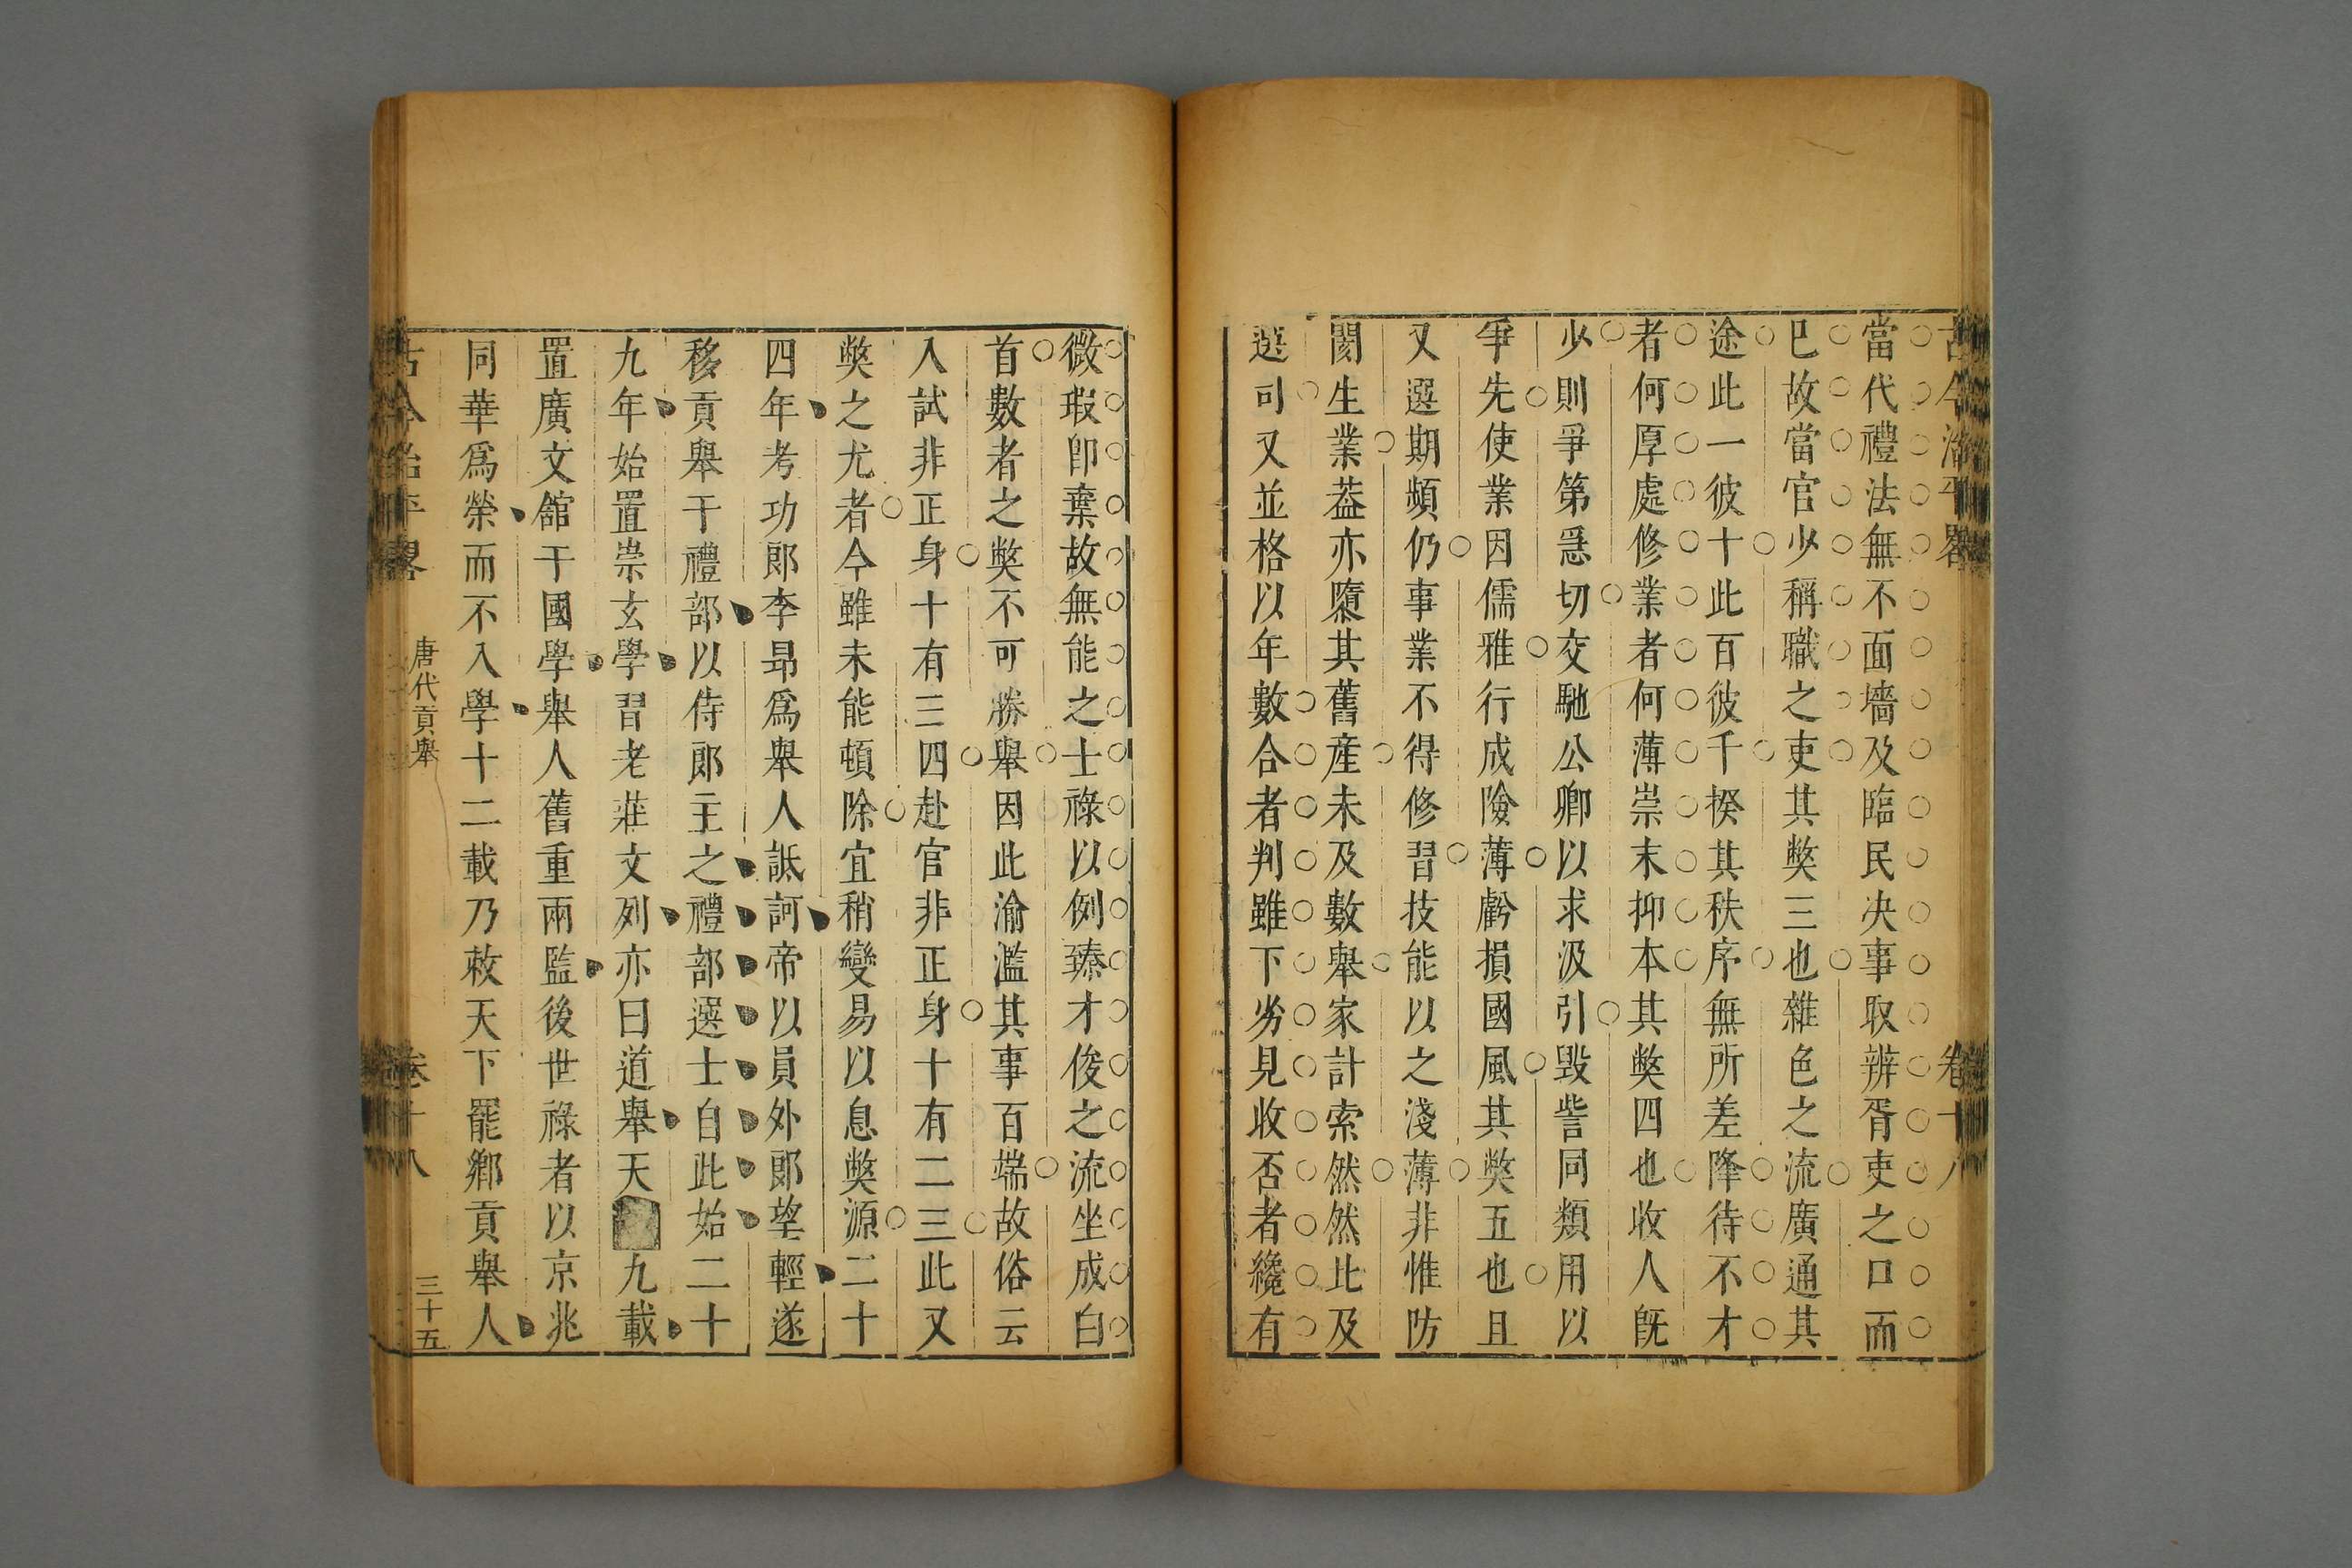 古今治平畧 卷十八
當代禮法無不面墻及臨民决事取辨胥吏之口而
已故當官少稱職之吏其獘三也雜色之流廣通其
途此一彼十此百彼千揆其秩序無所差降待不才
者何厚處修業者何薄崇末抑本其獘四也收人旣
少則爭第急切交馳公卿以求汲引毀訾同類用以
爭先使業因儒雅行成險薄虧損國風其獘五也且
又選期頻仍事業不得修習技能以之淺薄非惟防
閡生業葢亦隳其舊產未及數舉家計索然然比及
選可又並格以年數合者判雖下劣見收否者纔有
微瑕卽棄故無能之士祿以例臻才俊之流坐成白
首數者之獘不可勝舉因此渝濫其事百端故俗云
入試非正身十有三四赴官非正身十有二三此又
獘之尤者今雖未能頓除宜稍變易以息獘源二十
四年考功郎李昻爲舉人詆訶帝以員外郎望輕遂
移貢舉于禮部以侍郎主之禮部選士自此始二十
九年始置崇玄學習老莊文列亦曰道舉天九載
置廣文舘于國學舉人舊重兩監後世祿者以京兆
同華爲榮而不入學十二載乃敕天下罷鄉貢舉人
古今治平畧 唐代貢舉 卷十八 三十五